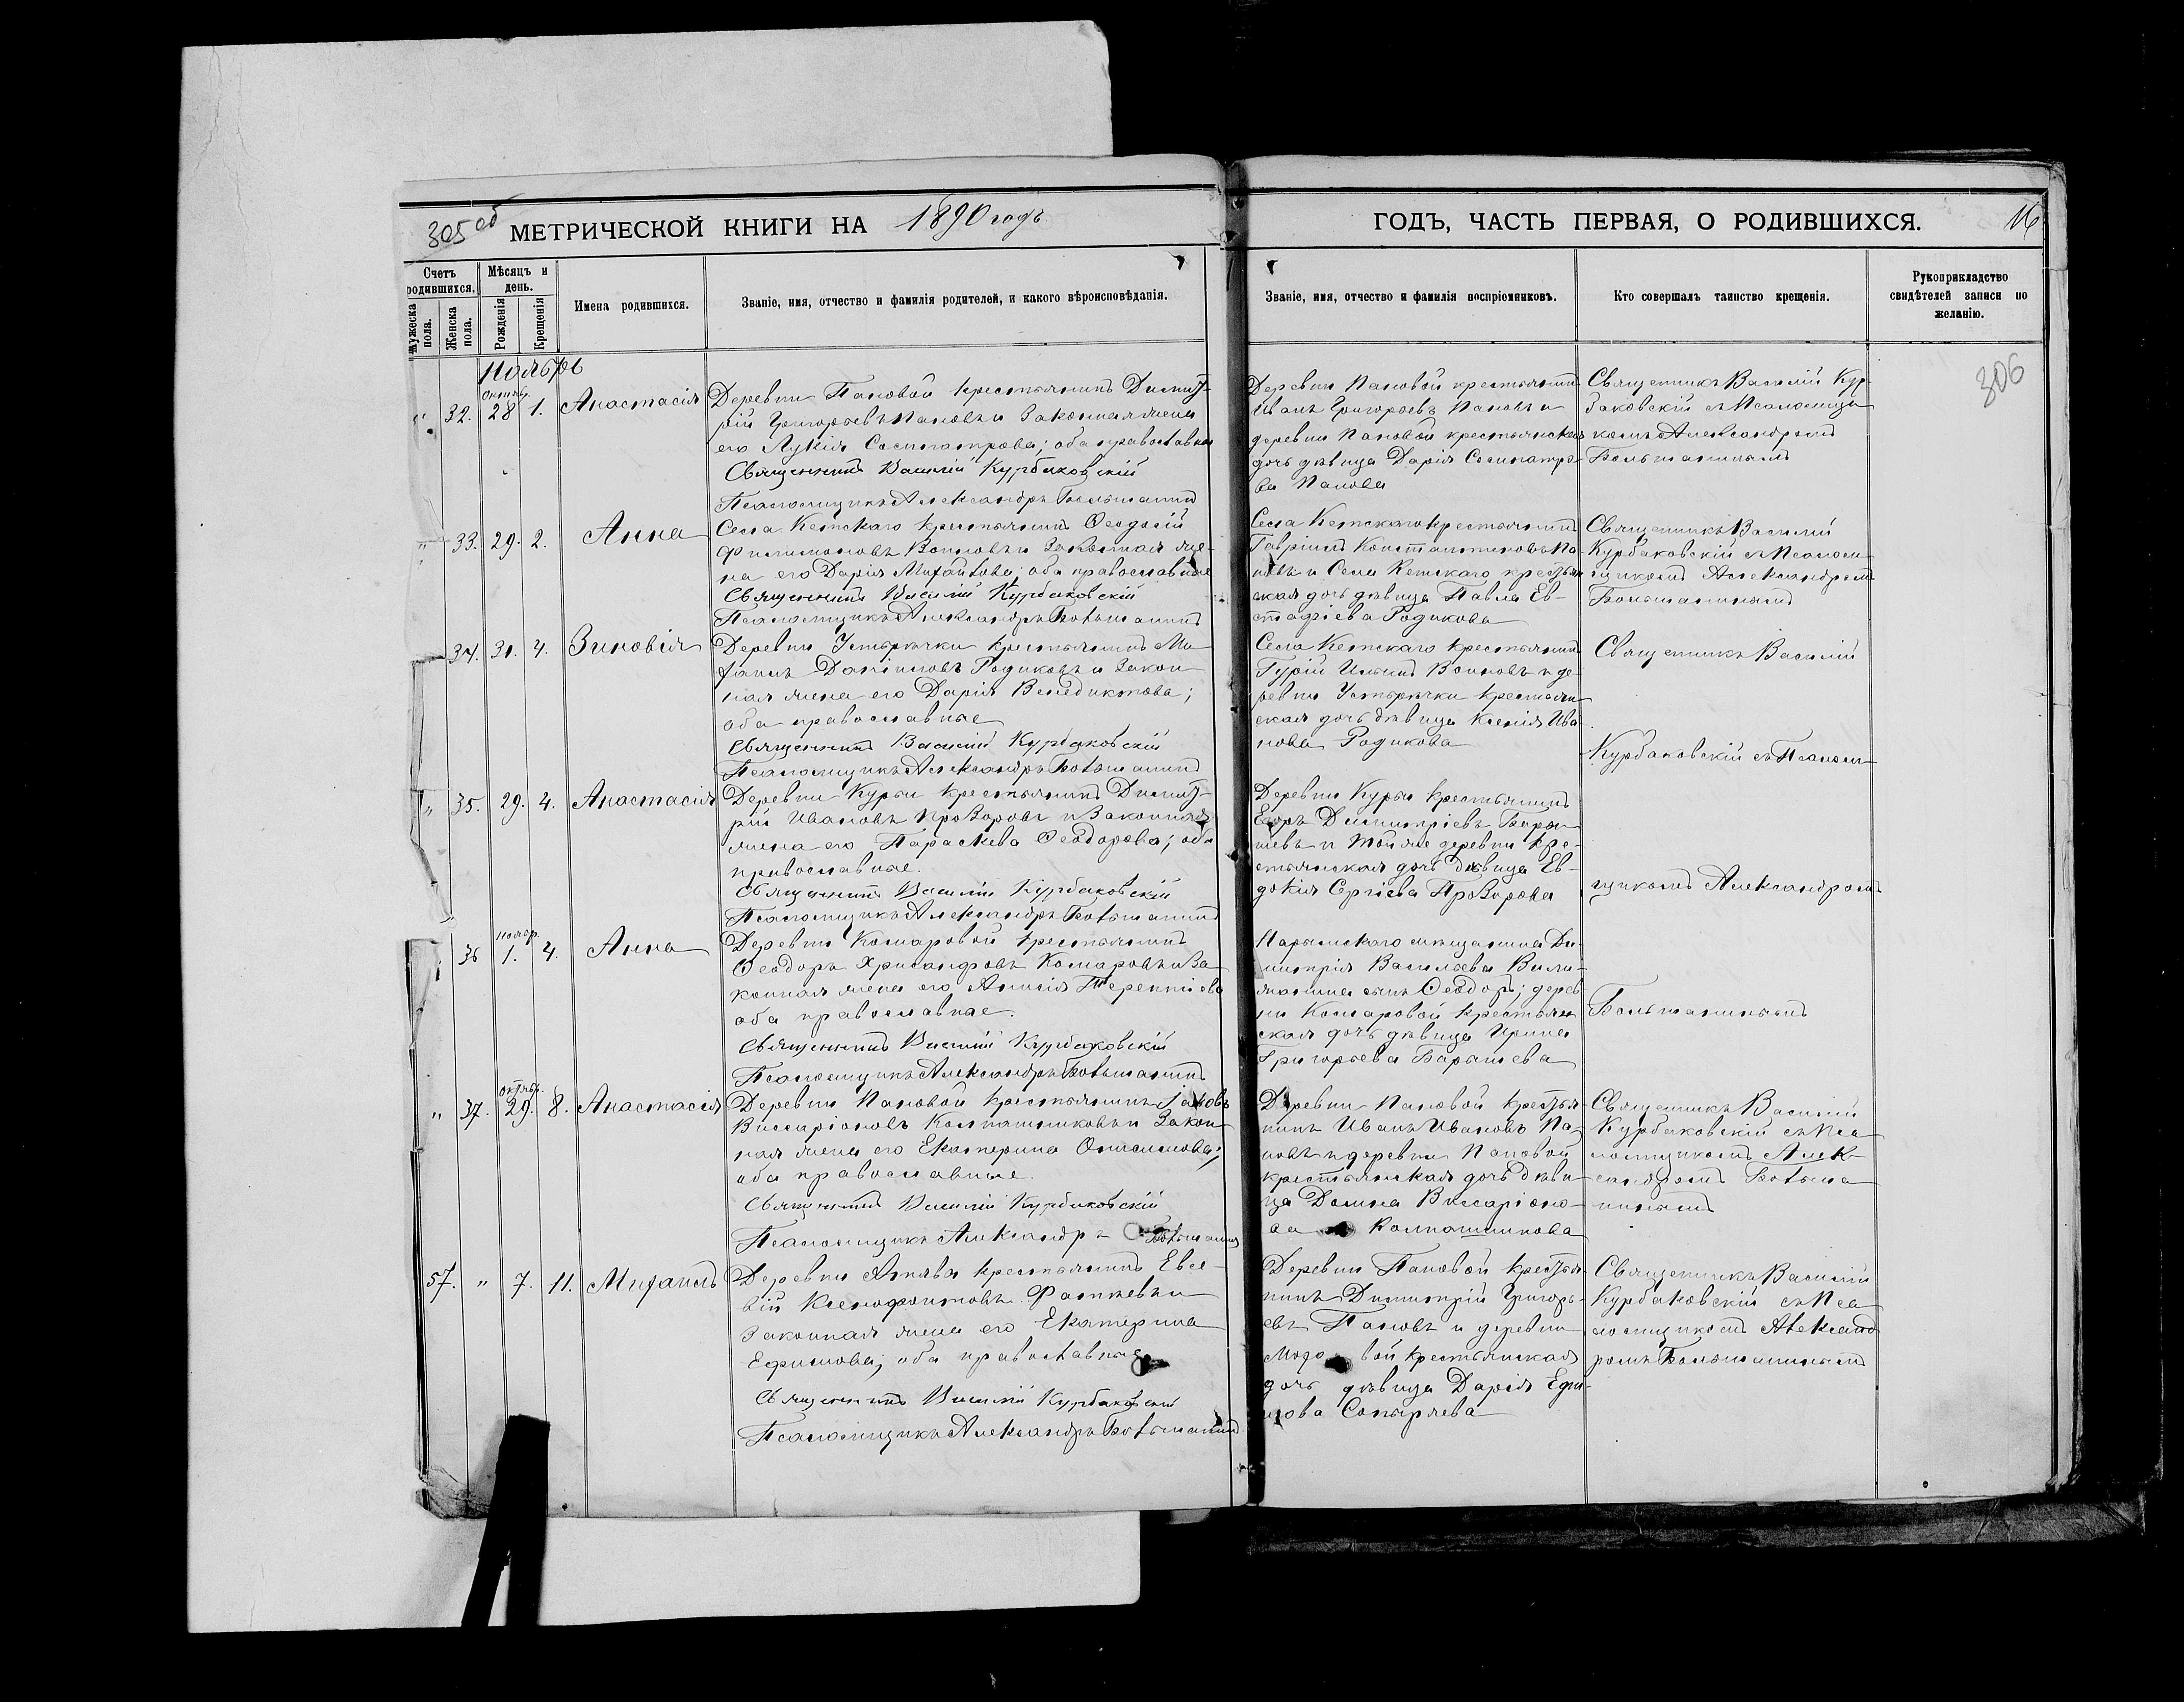 305 об
МЕТРИЧЕСКОЙ КНИГИ НА 1890 годъ
ГОДЪ, ЧАСТЬ ПЕРВАЯ, О РОДИВШИХСЯ.
16
306
Счетъ родившихся.
Мужеска пола.
Женска пола.
Мѣсяцъ и день.
Рожденія
Крещенія
Имена родившихся.
Званіе, имя, отчество и фамилія родителей, и какого вѣроисповѣданія.
Званіе, имя, отчество и фамилія воспріемниковъ.
Кто совершалъ таинство крещенія.
Рукоприкладство
свидѣтелей записи по
желанію.
Ноябрь
" 32. Октяб. 28 1. Анастасія
Деревни Пановой крестьянинъ Димит-
рій Григорьевъ Пановъ и законная жена
его Лукія Сосипатрова; оба православные
Священникъ Василій Курбаковскій
Псаломщикъ Александръ Большанинъ
Деревни Пановой крестьянинъ
Иванъ Григорьевъ Пановъ и
деревни Пановой крестьянская
дочь дѣвица Дарія Сосипатро-
ва Панова
Священникъ Василій Кур-
баковскій съ Псаломщи-
комъ Александромъ
Большанинымъ
" 33. 29. 2. Анна
Села Кетскаго крестьянинъ Ѳеодосій
Филимоновъ Воиновъ и законная же-
на его Дарія Михайлова; оба православные
Священникъ Василій Курбаковскій
Псаломщикъ Александръ Большанинъ
Села Кетскаго крестьянинъ
Гавріилъ Константиновъ Па-
новъ и Села Кетскаго крестьян-
ская дочь дѣвица Павла Ев-
стафіева Родикова
Священникъ Василій
Курбаковскій съ Псалом-
щикомъ Александромъ
Большанинымъ
34. 31. 4. Зиновія
Деревни Устьрѣчки крестьянинъ Ми-
хаилъ Даніиловъ Родиковъ и закон-
ная жена его Дарія Венедиктова;
оба православные
Священникъ Василій Курбаковскій
Псаломщикъ Александръ Большанинъ
Села Кетскаго крестьянинъ
Гурій Ильинъ Воиновъ и де-
ревни Устьрѣчки крестьян-
ская дочь дѣвица Ксенія Ива-
нова Родикова
Священникъ Василій
Курбаковскій съ Псалом-
" 35. 29. 4. Анастасія
Деревни Курьи крестьянинъ Димит-
рій Ивановъ Прозоровъ и законная
жена его Параскева Ѳеодорова; оба
православные.
Священникъ Василій Курбаковскій
Псаломщикъ Александръ Большанинъ
Деревни Курьи крестьянинъ
Егоръ Димитріевъ Бары-
шевъ и той же деревни кре-
стьянская дочь дѣвица Ев-
докія Сергіева Прозорова
щикомъ Александромъ
36 Ноябр. 1. 4. Анна
Деревни Комаровой крестьянинъ
Ѳеодоръ Хрисанфовъ Комаровъ и за-
конная жена его Анисія Терентіева
оба православные.
Священникъ Василій Курбаковскій
Псаломщикъ Александръ Большанинъ
Нарымскаго мѣщанина Ди-
митрія Васильева
сынъ Ѳеодоръ; дерев-
ни Комаровой крестьян-
ская дочь дѣвица Ирина
Григорьева Барышева
Большанинымъ
" 37. Октябр. 29. 8. Анастасія
Деревни Пановой крестьянинъ Іаковъ
Виссаріоновъ Колпашниковъ и закон-
ная жена его Екатерина Онисимова;
оба православные.
Священникъ Василій Курбаковскій
Псаломщикъ Александръ Большанинъ
Деревни Пановой крестья-
нинъ Иванъ Ивановъ Па-
новъ и деревни Пановой
крестьянская дочь дѣви-
ца Домна Виссаріоно-
ва Колпашникова
Священникъ Василій
Курбаковскій съ Пса-
ломщикомъ Алек-
сандромъ Больша-
нинымъ
57. " 7. 11. Михаилъ
Деревни крестьянинъ Евсе-
вій Ксенофонтовъ Фатѣевъ и
законная жена его Екатерина
Ефимова; оба православные
Священникъ Василій Курбаковскій
Псаломщикъ Александръ Большанинъ
Деревни Пановой крестья-
нинъ Димитрій Григорь-
евъ Пановъ и деревни
вой крестьянская
дочь дѣвица Дарія Ефи-
мова Сопыряева
Священникъ Василій
Курбаковскій съ Пса-
ломщикомъ Александ-
ромъ Большанинымъ